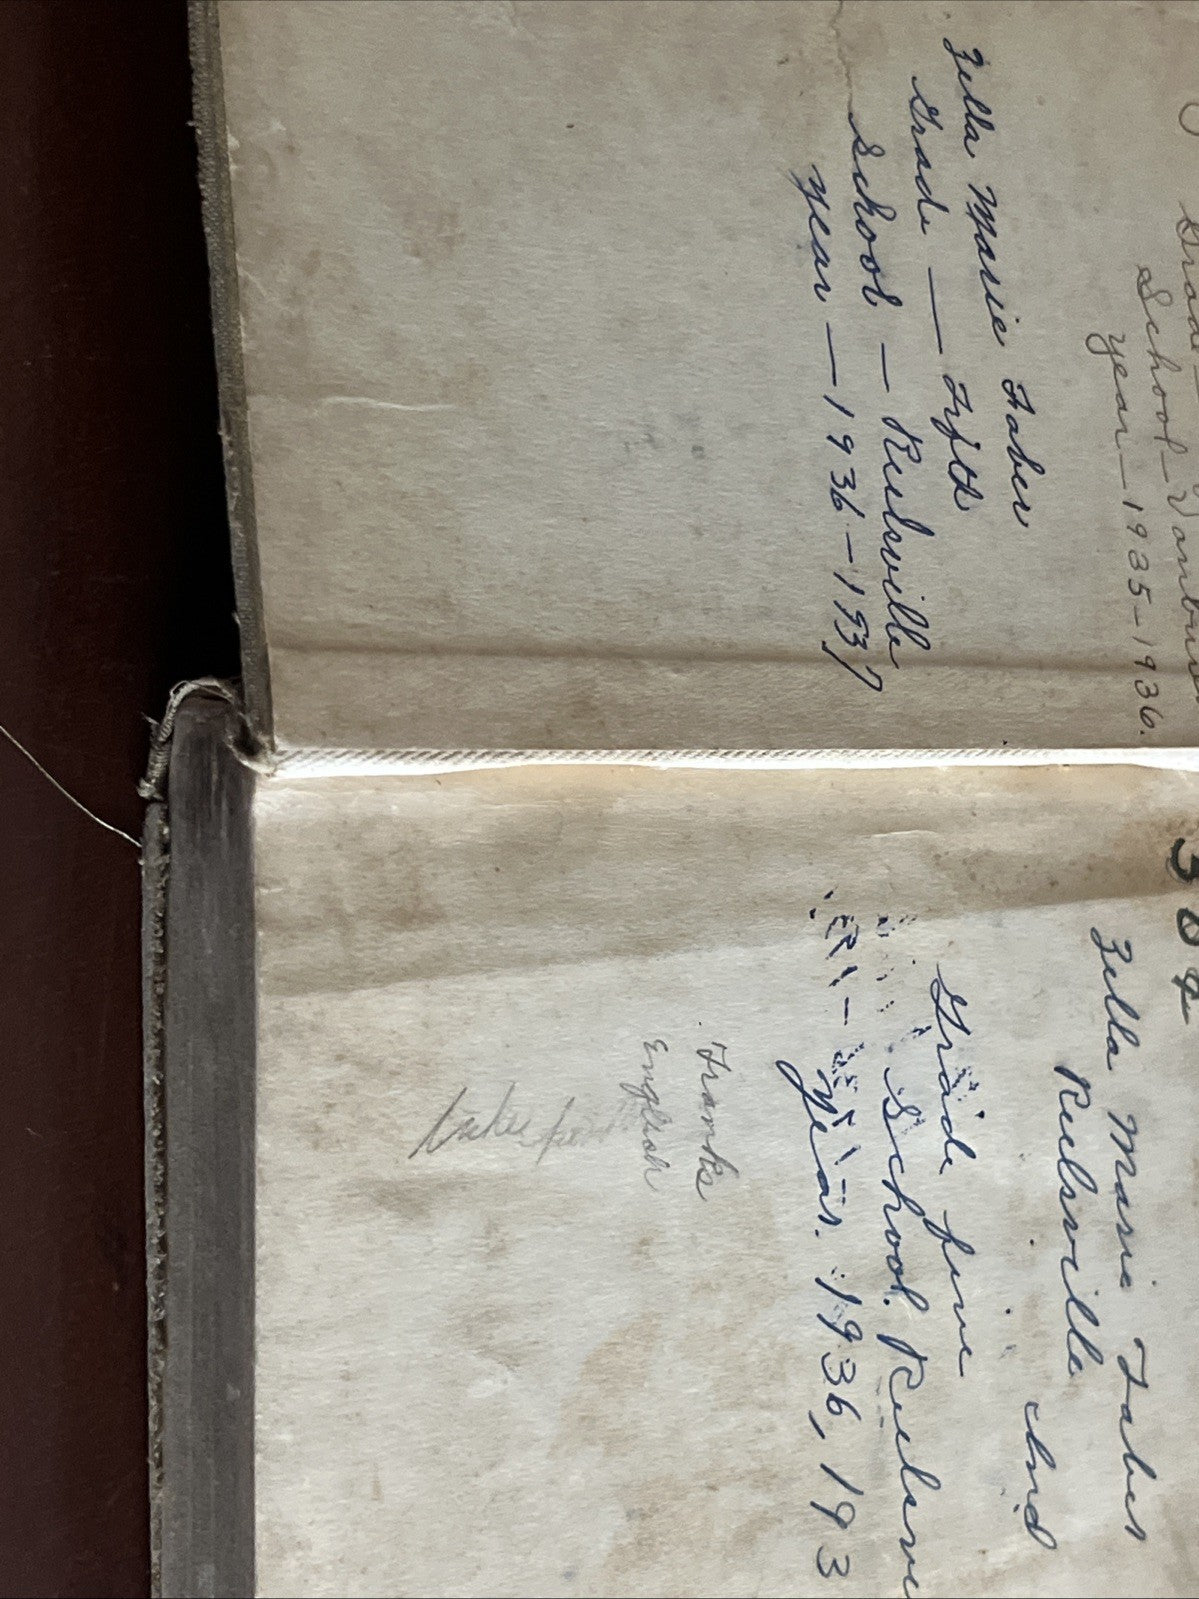 Grade—
School—Vanburen
year—1935-1936.
Zella Marie Faber
Grade — Fifth
School — Reelsville
year — 1936-1937
304
Zella Marie Faber
Reelsville
Ind
Grade five
School. Reelsvi
year. 1936, 193
Franks
English